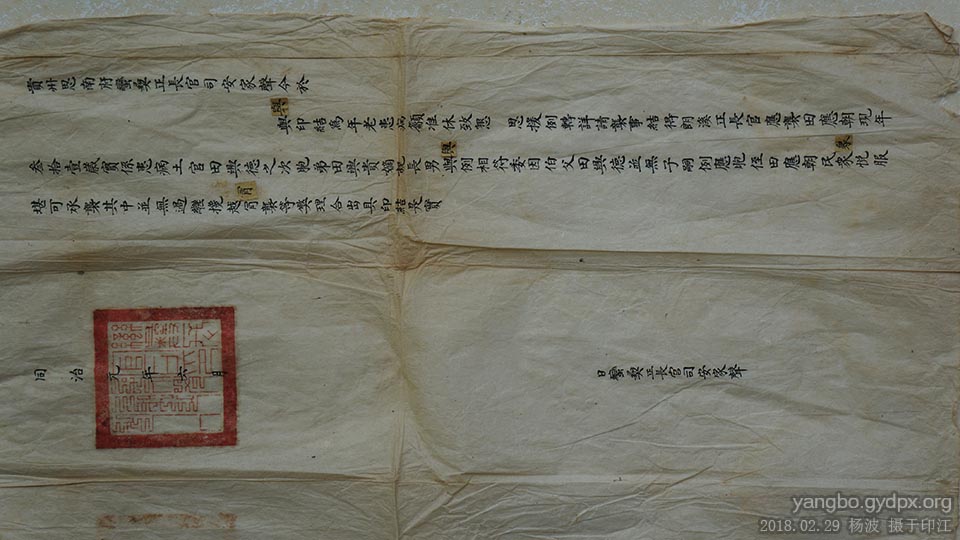 貴州思南府蠻夷正長官司安家聲今於
與印結為年老患病願准休致懇 恩援例轉詳請襲事結得朗溪正長官應襲田應朝現年
叁拾壹歲實係患病土官田興德之次胞弟田興貴嫡長男與例相符委因伯父田興德並無子嗣例應胞侄田應朝民眾悅服
堪可承襲其中並無過繼攙越冒襲等獘理合出具印結是實
同治元年六月 日蠻夷正長官司安家聲
yangbo.gydpx.org
2018.02.29 杨波 摄于印江